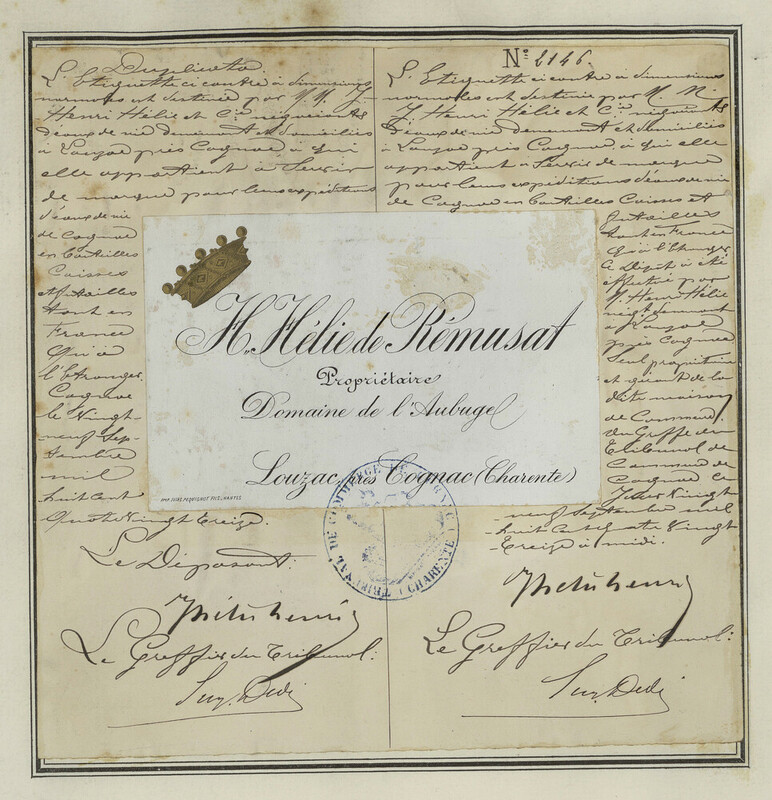 Duplicata.
L'Etiquette ci contre à dimensions
normales est destinée par M.M. J.
Henri Hélie et Cie négociants
d'eaux de vie demeurant et domiciliés
à Louzac près Cognac à qui
elle appartient à Servir
de marque pour leurs expéditions
d'eaux de vie
de Cognac
en bouteilles
Caisses
et futailles
tant en
France
qu'à
l'Etranger.
Cognac
le Vingt-
neuf Sep-
tembre
mil
huit cent
Quatre Vingt Treize.
Le Déposant:
Hélie henri
Le Greffier du Tribunal:
N° 2146.
L'Etiquette ci contre à dimensions
normales est destinée par M.M.
J. Henri Hélie et Cie négociants
d'eaux de vie demeurant et domiciliés
à Louzac près Cognac à qui elle
appartient à Servir de marque
pour leurs expéditions d'eaux de vie
de Cognac en bouteilles Caisses et
futailles
tant en France
qu'à l'Etranger
Ce Dépôt a été
effectué par
J. Henri Hélie
négt demeurant
à Louzac
près Cognac
Seul propriétaire
et gérant de la
dite maison
de Commerce
Au Greffe du
Tribunal de
Commerce de
Cognac ce
Jour Vingt
neuf septembre mil
huit cent quatre Vingt
Treize à midi.
Hélie henri
Le Greffier du Tribunal:
H. Hélie de Rémusat
Propriétaire
Domaine de l'Aubuge
Louzac, près Cognac (Charente)
TRIBUNAL DE COMMERCE DE COGNAC
CHARENTE